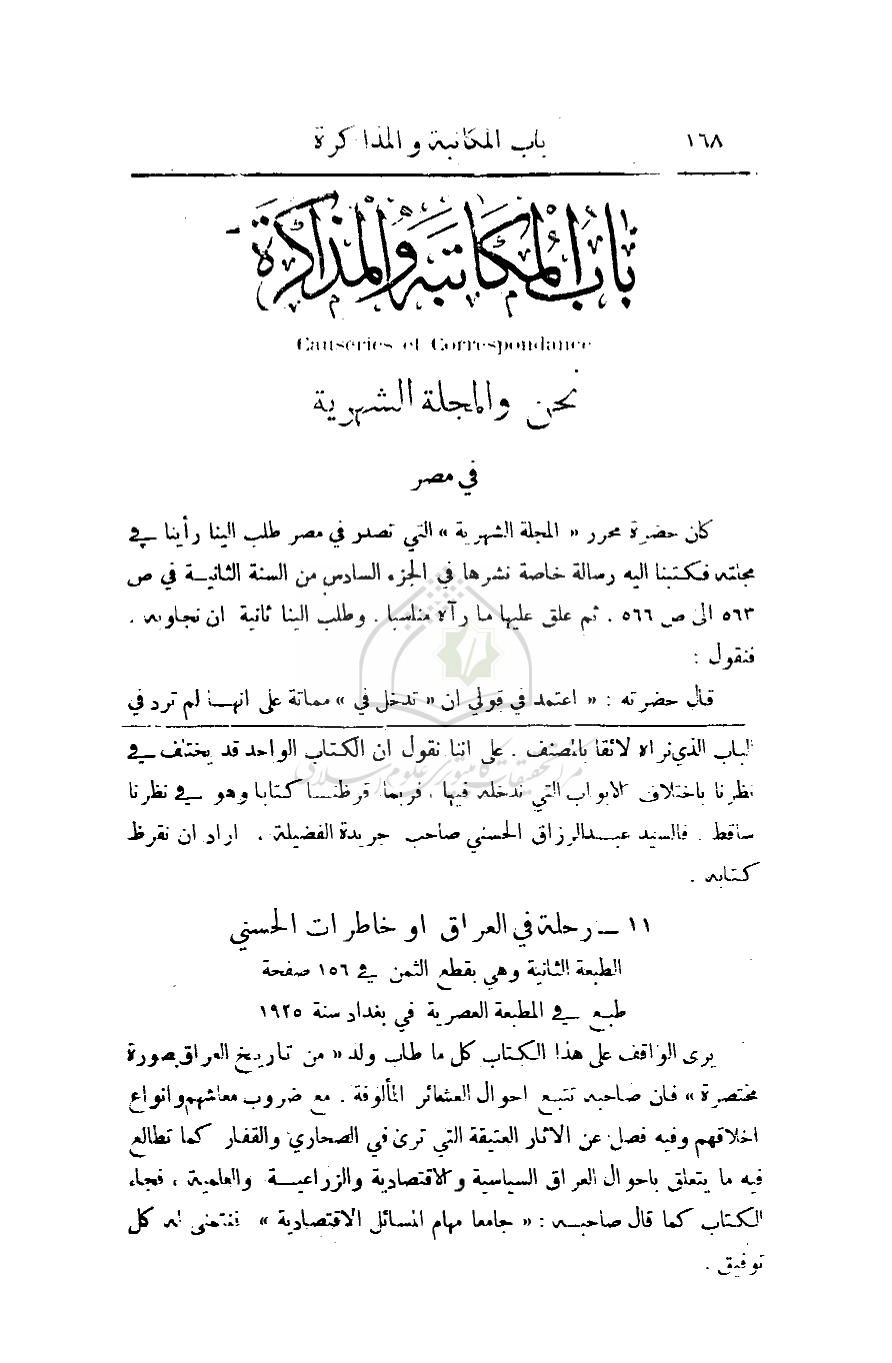 ١٦٨ باب المكاتبة والمذاكرة
باب المكاتبة والمذاكرة
Causeries et Correspondance
نحن والمجلة الشهرية
في مصر
كان حضرة محرر « المجلة الشهرية » التي تصدر في مصر طلب الينا رأينا في
مجلته فكتبنا اليه رسالة خاصة نشرها في الجزء السادس من السنة الثانية في ص
٥٦٣ الى ص ٥٦٦ . ثم علق عليها ما رآه مناسبا . وطلب الينا ثانية ان نجاوبه .
فنقول :
قال حضرته : « اعتمد في قولي ان « تدخل في » مماتة على انها لم ترد في
الباب الذي نراه لائقا بالمصنف . على اننا نقول ان الكتاب الواحد قد يختلف في
نظرنا باختلاف الابواب التي ندخله فيها . فربما قرظنا كتابا وهو في نظرنا
ساقط . فالسيد عبدالرزاق الحسني صاحب جريدة الفضيلة . اراد ان نقرظ
كتابه .
١١ – رحلة في العراق او خاطرات الحسني
الطبعة الثانية وهي بقطع الثمن في ١٥٦ صفحة
طبع في المطبعة العصرية في بغداد سنة ١٩٢٥
يرى الواقف على هذا الكتاب كل ما طاب ولد « من تاريخ العراق بصورة
مختصرة » فان صاحبه تتبع احوال العشائر المألوفة . مع ضروب معاشهم وانواع
اخلاقهم وفيه فصل عن الاثار العتيقة التي ترى في الصحاري والقفار كما تطالع
فيه ما يتعلق باحوال العراق السياسية والاقتصادية والزراعية والعلمية ، فجاء
الكتاب كما قال صاحبه : « جامعا مهام المسائل الاقتصادية » فنتمنى له كل
توفيق .